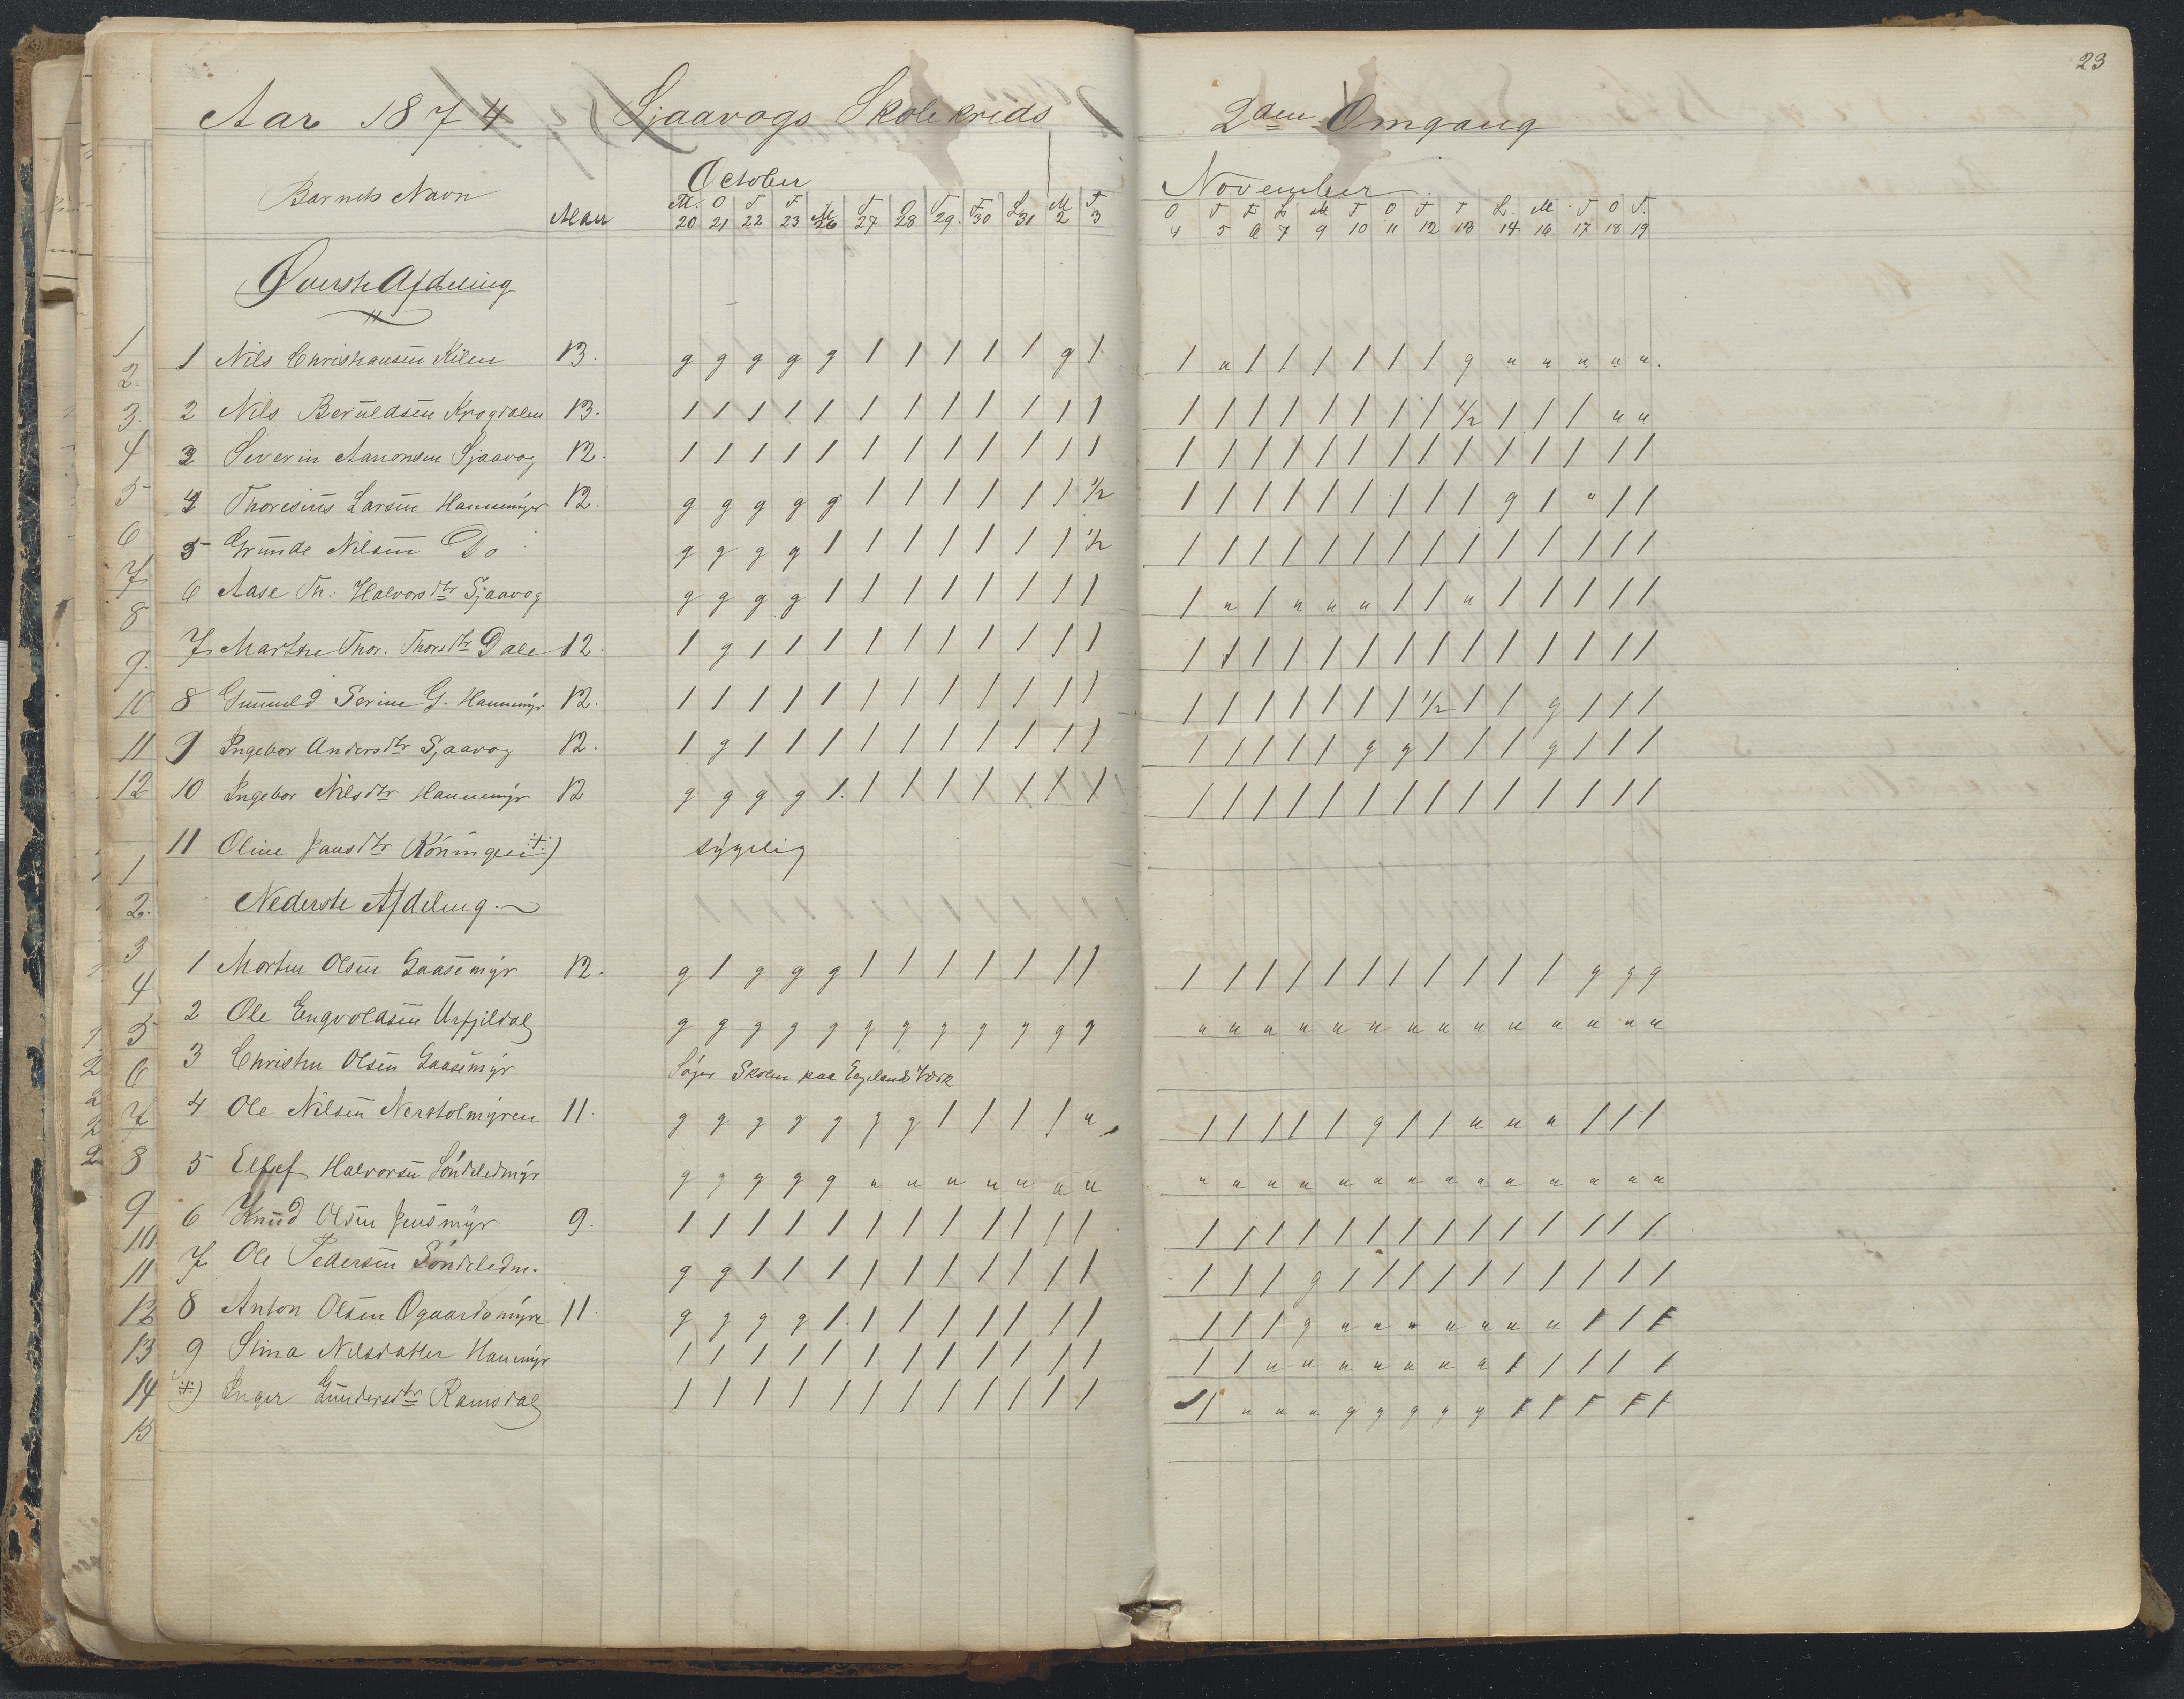 23
Aar 1874 Sjaavogs Skolekreds 2den Omgang
Barnets Navn October November
T. O T F M T O T. F L M T O T F L M T O T F L. M T O T.
20 21 22 23 26 27 28 29. 30 31 2 3 4 5 6 7 9 10 11 12 13 14 16 17 18 19
Øverste Afdeling
1 Nils Christiansen Kilen 13. g g g g g 1 1 1 1 1 g 1 1 u 1 1 1 1 1 1 g u u u u u.
2 Nils Beruldsen Krogdalen 13. 1 1 1 1 1 1 1 1 1 1 1 1 1 1 1 1 1 1 1 1 1/2 1 1 1 u u
3 Severin Aanonsen Sjaavog 12. 1 1 1 1 1 1 1 1 1 1 1 1 1 1 1 1 1 1 1 1 1 1 1 1 1 1
4 Thoresius Larsen Hammemyr 12. g g g g g 1 1 1 1 1 1 1/2 1 1 1 1 1 1 1 1 1 g 1 u 1 1
5 Grunde Nilsen Do g g g g 1 1 1 1 1 1 1 1/2 1 1 1 1 1 1 1 1 1 1 1 1 1 1
6 Aase Th. Halvorsdtr Sjaavog g g g g 1 1 1 1 1 1 1 1 1 u 1 u u u 1 1 u 1 1 1 1 1
7 Thor. Thorsdtr Dale 12. 1 g 1 1 1 1 1 1 1 1 1 1 1 1 1 1 1 1 1 1 1 1 1 1 1 1
8 Gunuld Serine G. Hammemyr 12. 1 1 1 1 1 1 1 1 1 1 1 1 1 1 1 1 1 1 1 1/2 1 1 g 1 1 1
9 Ingebor Andersdtr Sjaavog 12. 1 g 1 1 1 1 1 1 1 1 1 1 1 1 1 1 1 g g 1 1 1 g 1 1 1
10 Ingebor Nilsdtr Hammemyr 12 g g g g 1. 1 1 1 1 1 1 1 1 1 1 1 1 1 1 1 1 1 1 1 1 1
11 Oline Jansdtr Röningen sygelig
Nederste Afdeling.
1 Morten Olsen Gaasemyr 12. g 1 g g g 1 1 1 1 1 1 1 1 1 1 1 1 1 1 1 1 1 1 g g g
2 Ole Engvoldsen Urfjeldal g g g g g g g g g g g g u u u u u u u u u u u u u u
3 Christen Olsen Gaasemyr Søger Skolen paa Egelands Værk
4 Ole Nilsen Nerstolmyren 11. g g g g g g g 1 1 1 1 u 1 1 1 1 1 g 1 1 u u u 1 1 1
5 Ellef Halvorsen Söndeledmyr g g g g g u u u u u u u u u u u u u u u u u u u u u
6 Knud Olsen Jensmyr 9. 1 1 1 1 1 1 1 1 1 1 1 1 1 1 1 1 1 1 1 1 1 1 1 1 1 1
7 Ole Pedersen Söndeledm. g g 1 1 1 1 1 1 1 1 1 1 1 1 1 g 1 1 1 1 1 1 1 1 1 1
8 Anton Olsen Ogaardsmyra 11. g g g g 1. 1 1 1 1 1 1 1 1 1 1 g u u u u u u u F 1 F
9 Stina Nilsdatter Hammemyr 1 1 1 1 1 1 1 1 1 1 1 1 1 1 u u u u u u u 1 1 1 1 1
Inger Gundersdtr Ramsdal 1 1 1 1 1 1 1 1 1 1 1 1 1 u u u g g g g g F F F F F